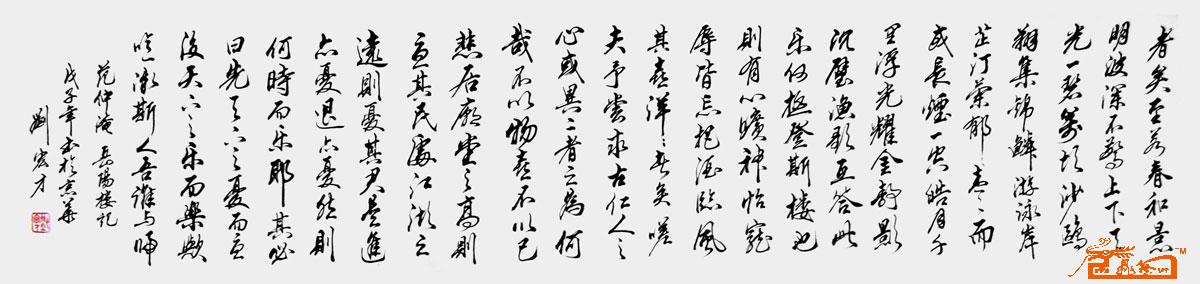 者矣至若春和景
明波瀾不驚上下天
光一碧萬頃沙鷗
翔集錦鱗游泳岸
芷汀蘭郁々青々而
或長煙一空皓月千
里浮光耀金靜影
沉璧漁歌互答此
乐何極登斯楼也
則有心曠神怡寵
辱皆忘把酒臨風
其喜洋々者矣嗟
夫予嘗求古仁人之
心或異二者之為何
哉不以物喜不以己
悲居廟堂之高則
憂其民處江湖之
遠則憂其君是進
亦憂退亦憂然則
何時而乐耶其必
曰先天下之憂而憂
後天下之乐而樂歟
噫微斯人吾誰与歸
范仲淹 岳陽樓記
戊子年書於京華
劉宏才